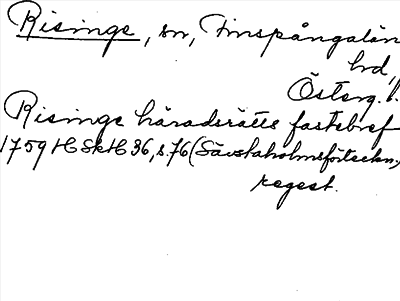 Risinge, sn, Finspångalän
hrd,
Österg. l.
Risinge häradsrätts fastebref
1759 HSkH 36, s. 76 (Sävstaholmsförteckn.)
regest.